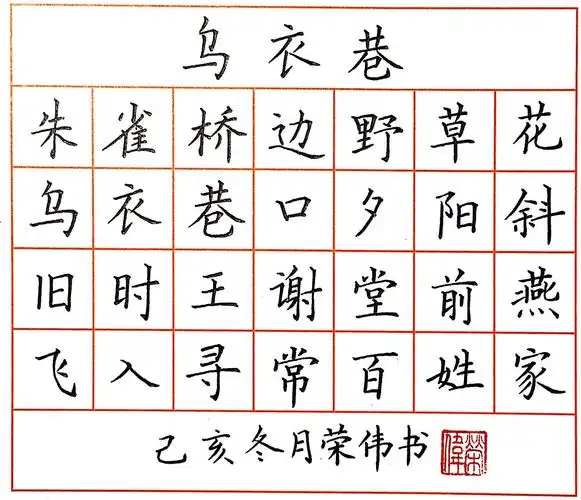 乌衣巷
朱雀桥边野草花
乌衣巷口夕阳斜
旧时王谢堂前燕
飞入寻常百姓家
己亥冬月荣伟书
荣伟